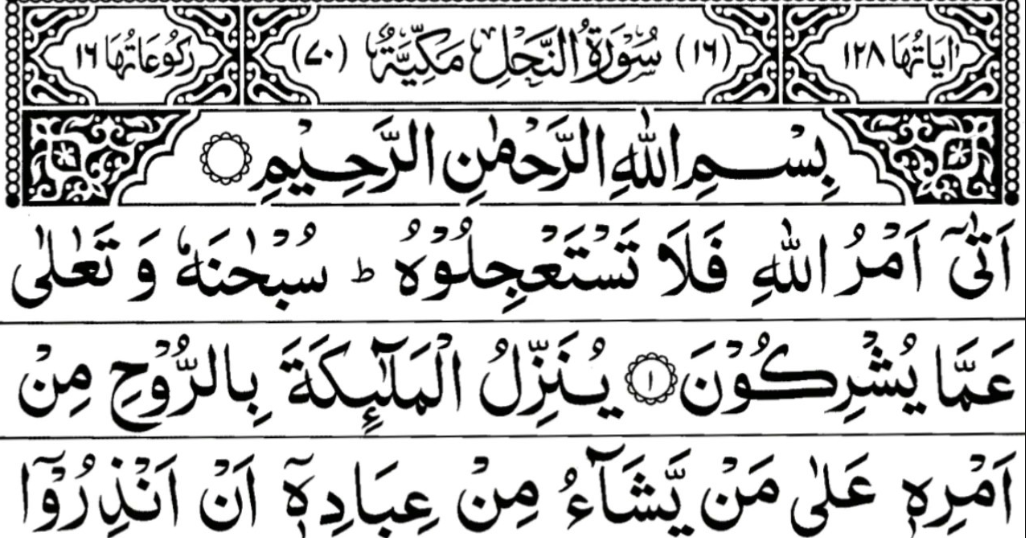 اٰيَاتُهَا ١٢٨ (١٦) سُوْرَةُ النَّحْلِ مَكِّيَّةٌ (٧٠) رُكُوْعَاتُهَا ١٦
بِسْمِ اللّٰهِ الرَّحْمٰنِ الرَّحِيْمِ
اَتٰۤى اَمْرُ اللّٰهِ فَلَا تَسْتَعْجِلُوْهُ ؕ سُبْحٰنَهٗ وَ تَعٰلٰى
عَمَّا يُشْرِكُوْنَ ١ يُنَزِّلُ الْمَلٰٓئِكَةَ بِالرُّوْحِ مِنْ
اَمْرِهٖ عَلٰى مَنْ يَّشَآءُ مِنْ عِبَادِهٖۤ اَنْ اَنْذِرُوْۤا